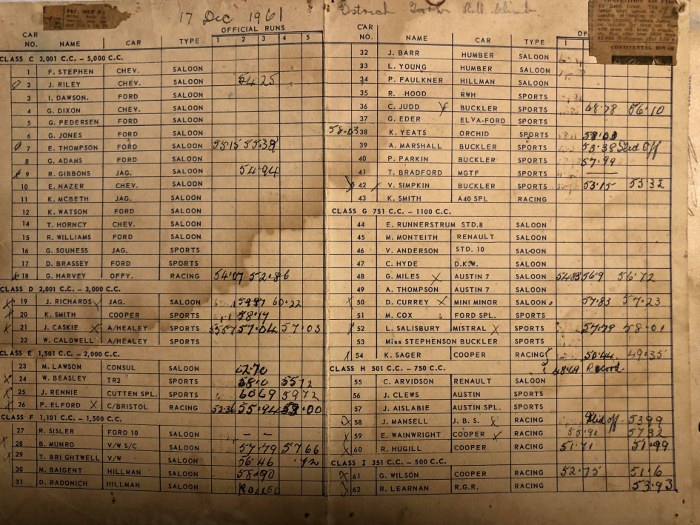 17 Dec 1961
OFFICIAL RUNS
CAR NO. NAME CAR TYPE 1 2 3 4 5
CLASS C 3,001 C.C. – 5,000 C.C.
1 F. STEPHEN CHEV. SALOON
2 J. RILEY CHEV. SALOON 54.25
3 I. DAWSON. FORD SALOON
4 G. DIXON CHEV. SALOON
5 G. PEDERSEN FORD SALOON
6 G. JONES FORD SALOON
7 E. THOMPSON FORD SALOON 55.15 55.38
8 G. ADAMS FORD SALOON
9 R. GIBBONS JAG. SALOON 54.94
10 E. NAZER CHEV. SALOON
11 K. McBETH JAG. SALOON
12 K. WATSON FORD SALOON
14 T. HORNCY CHEV. SALOON
15 R. WILLIAMS FORD SALOON
16 G. SOUNESS JAG. SPORTS
17 D. BRASSEY FORD SPORTS
18 G. HARVEY OFFY. RACING 54.07 52.86
CLASS D 2,001 C.C. – 3,000 C.C.
19 J. RICHARDS X JAG. SALOON 60.22
20 K. SMITH COOPER SPORTS 58.19
21 J. CASKIE X A/HEALEY SPORTS 57.04 57.03
22 W. CALDWELL A/HEALEY SPORTS
CLASS E 1,501 C.C. – 2,000 C.C.
23 M. LAWSON CONSUL SALOON 62.70
24 W. BEASLEY TR2 SPORTS 58.0 55.12
25 J. RENNIE CUTTEN SPL. SPORTS 60.69 59.72
26 P. ELFORD X C/BRISTOL RACING 52.36 55.94 53.00
CLASS F 1,101 C.C. – 1,500 C.C.
27 R. SISLER FORD 10 SALOON
28 B. MUNRO V/W S/C SALOON 57.79 57.66
29 T. BRIGHTWELL V/W SALOON 56.46
30 M. BAIGENT HILLMAN SALOON 58.90
31 D. RADONICH HILLMAN SALOON ROLLED
CAR NO. NAME CAR TYPE
32 J. BARR HUMBER SALOON
33 L. YOUNG HUMBER SALOON
34 P. FAULKNER HILLMAN SALOON
35 R. HOOD RWH SPORTS
36 C. JUDD BUCKLER SPORTS 68.78 56.10
37 G. EDER ELVA-FORD SPORTS
58.03 38 K. YEATS ORCHID SPORTS 58.03
39 A. MARSHALL BUCKLER SPORTS 55.38 off
40 P. PARKIN BUCKLER SPORTS 57.99
41 T. BRADFORD MGTF SPORTS
42 V. SIMPKIN BUCKLER SPORTS 53.15 53.32
43 K. SMITH A40 SPL RACING
CLASS G 751 C.C. – 1100 C.C.
44 E. RUNNERSTRUM STD.8 SALOON
45 M. MONTEITH RENAULT SALOON
46 V. ANDERSON STD. 10 SALOON
47 C. HYDE D.K.W. SALOON
48 G. MILES X AUSTIN 7 SALOON 56.72
49 A. THOMPSON AUSTIN 7 SALOON
50 D. CURREY X MINI MINOR SALOON 57.83 57.23
51 M. COX FORD SPL. SPORTS
52 L. SALISBURY MISTRAL X SPORTS 57.78 58.01
53 Miss STEPHENSON BUCKLER SPORTS
54 K. SAGER COOPER RACING 50.44 49.35
CLASS H 501 C.C. – 750 C.C. 48.49 Record
55 C. ARVIDSON RENAULT SALOON
56 J. CLEWS AUSTIN SPORTS
57 J. AISLABIE AUSTIN SPL. SPORTS
58 J. MANSELL J. B. S. X RACING off 53.99
59 E. WAINWRIGHT COOPER X RACING 57.32
60 R. HUGILL COOPER RACING 51.71 51.99
CLASS I 351 C.C. – 500 C.C.
61 G. WILSON COOPER RACING 52.75 51.6
62 R. LEARNAN R.G.R. RACING 53.93